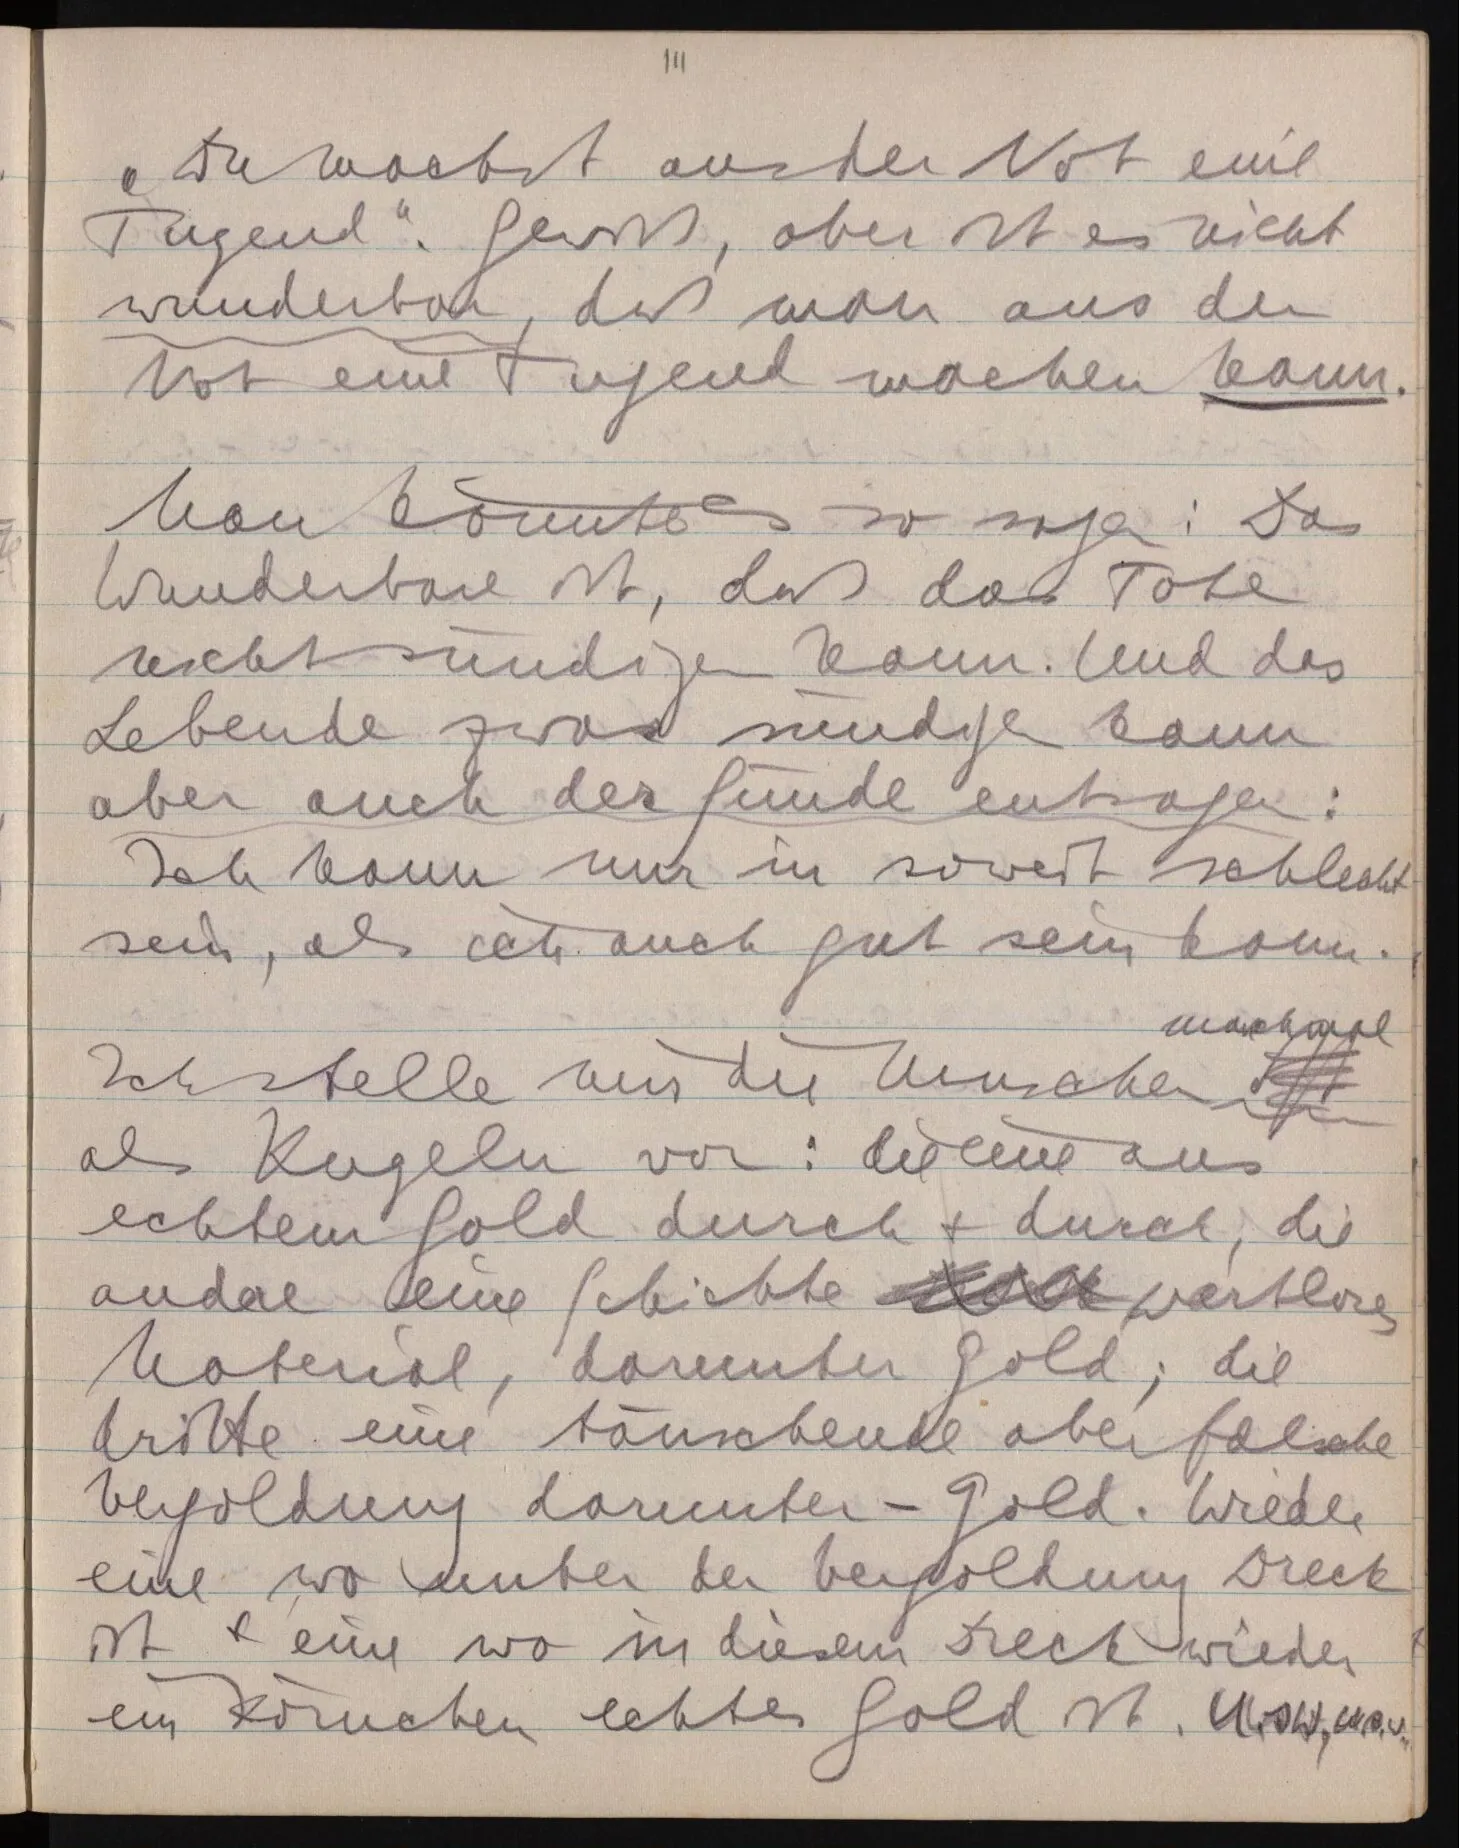 111
„Du machst aus der Not eine
Tugend“. Gewiß, aber ist es nicht
wunderbar, daß man aus der
Not eine Tugend machen kann.
Man könnte es so sagen: Das
Wunderbare ist, daß das Tote
nicht sündigen kann. Und das
Lebende zwar sündigen kann
aber auch der Sünde entsagen:
Ich kann nur in soweit schlecht
sein, als ich auch gut sein kann.
manchmal
Ich stelle mir die Menschen
als Kugeln vor: die eine aus
echtem Gold durch & durch, die
andere eine Schichte wertloses
Material, darunter Gold; die
dritte eine täuschende aber falsche
Vergoldung darunter – Gold. Wieder
eine wo unter der Vergoldung Dreck
ist & eine wo in diesem Dreck wieder
ein Körnchen echtes Gold ist. U.s.w, u.s.w.